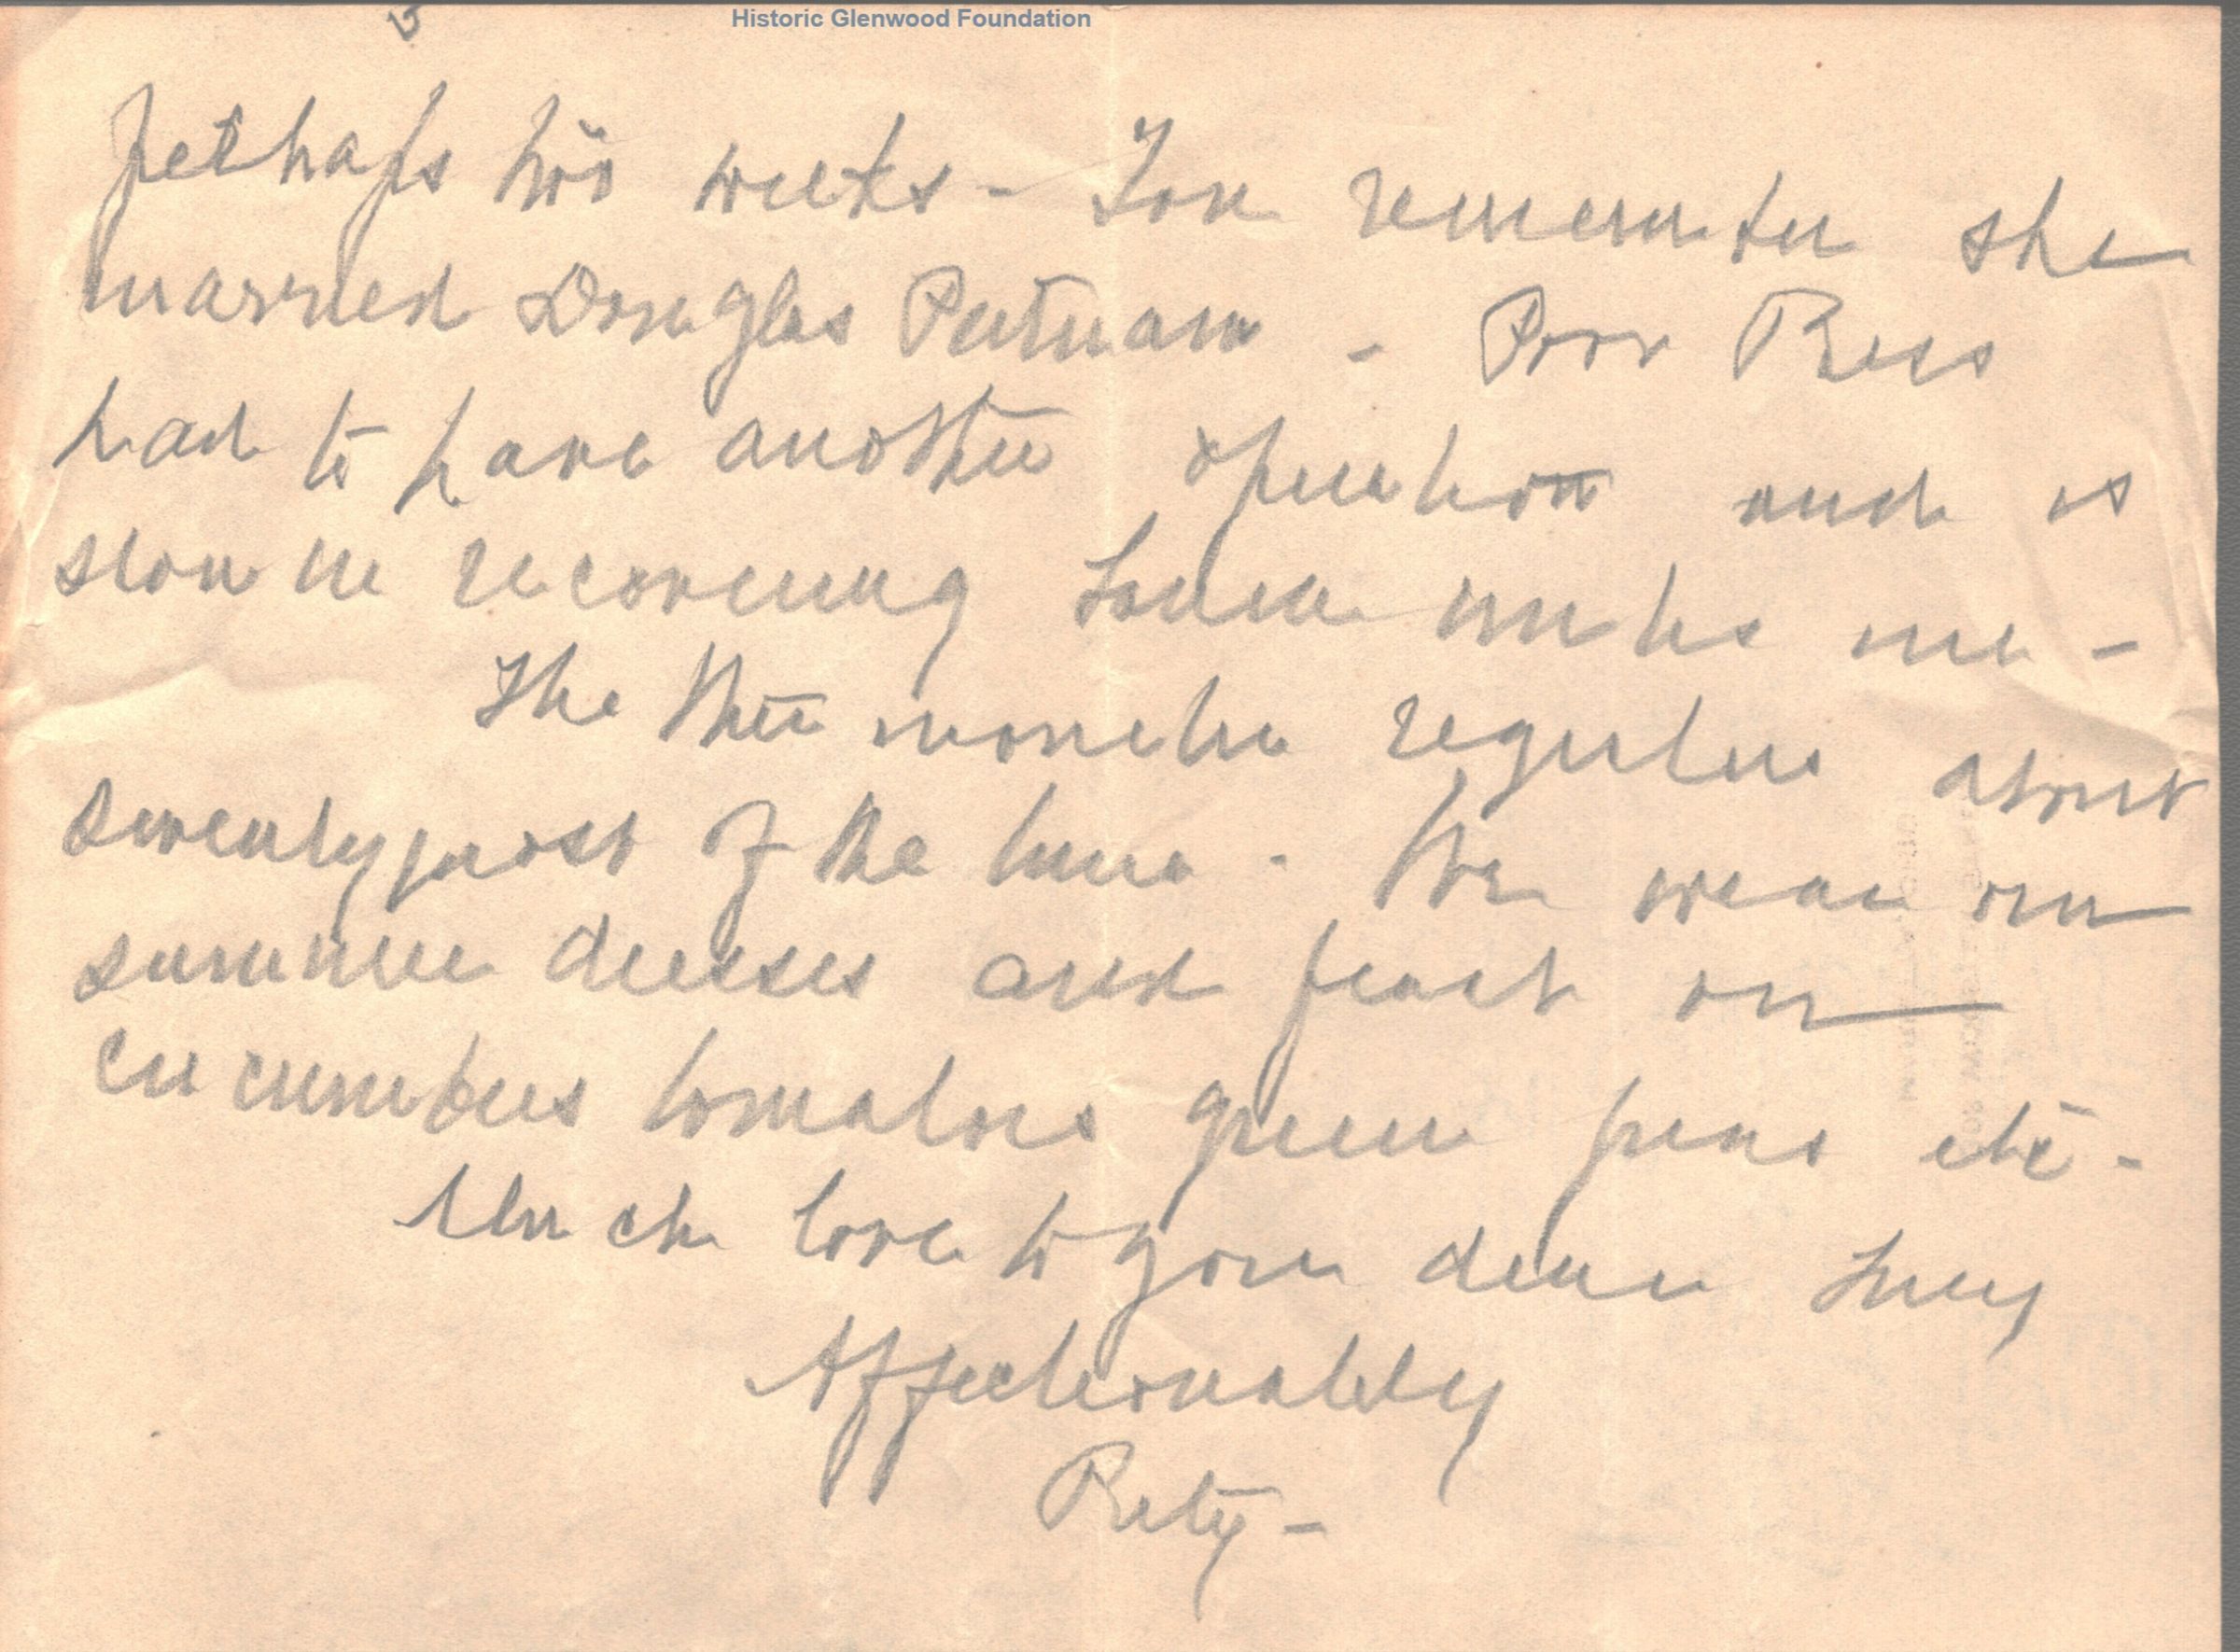 Historic Glenwood Foundation
perhaps two weeks - You remember she
married Douglas Putnam - Poor Bess
had to have another operation and is
slow in recovering Louisa writes me -
The thermometer registers about
seventy most of the time - We wear our
summer dresses and feast on
cucumbers tomatoes green peas etc -
Much love to you dear Lucy
Affectionately